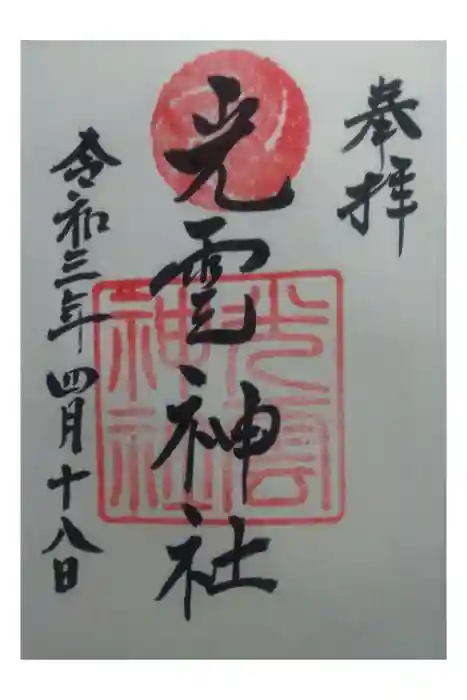 奉拝
光雲神社
光雲
神社
令和三年四月十八日